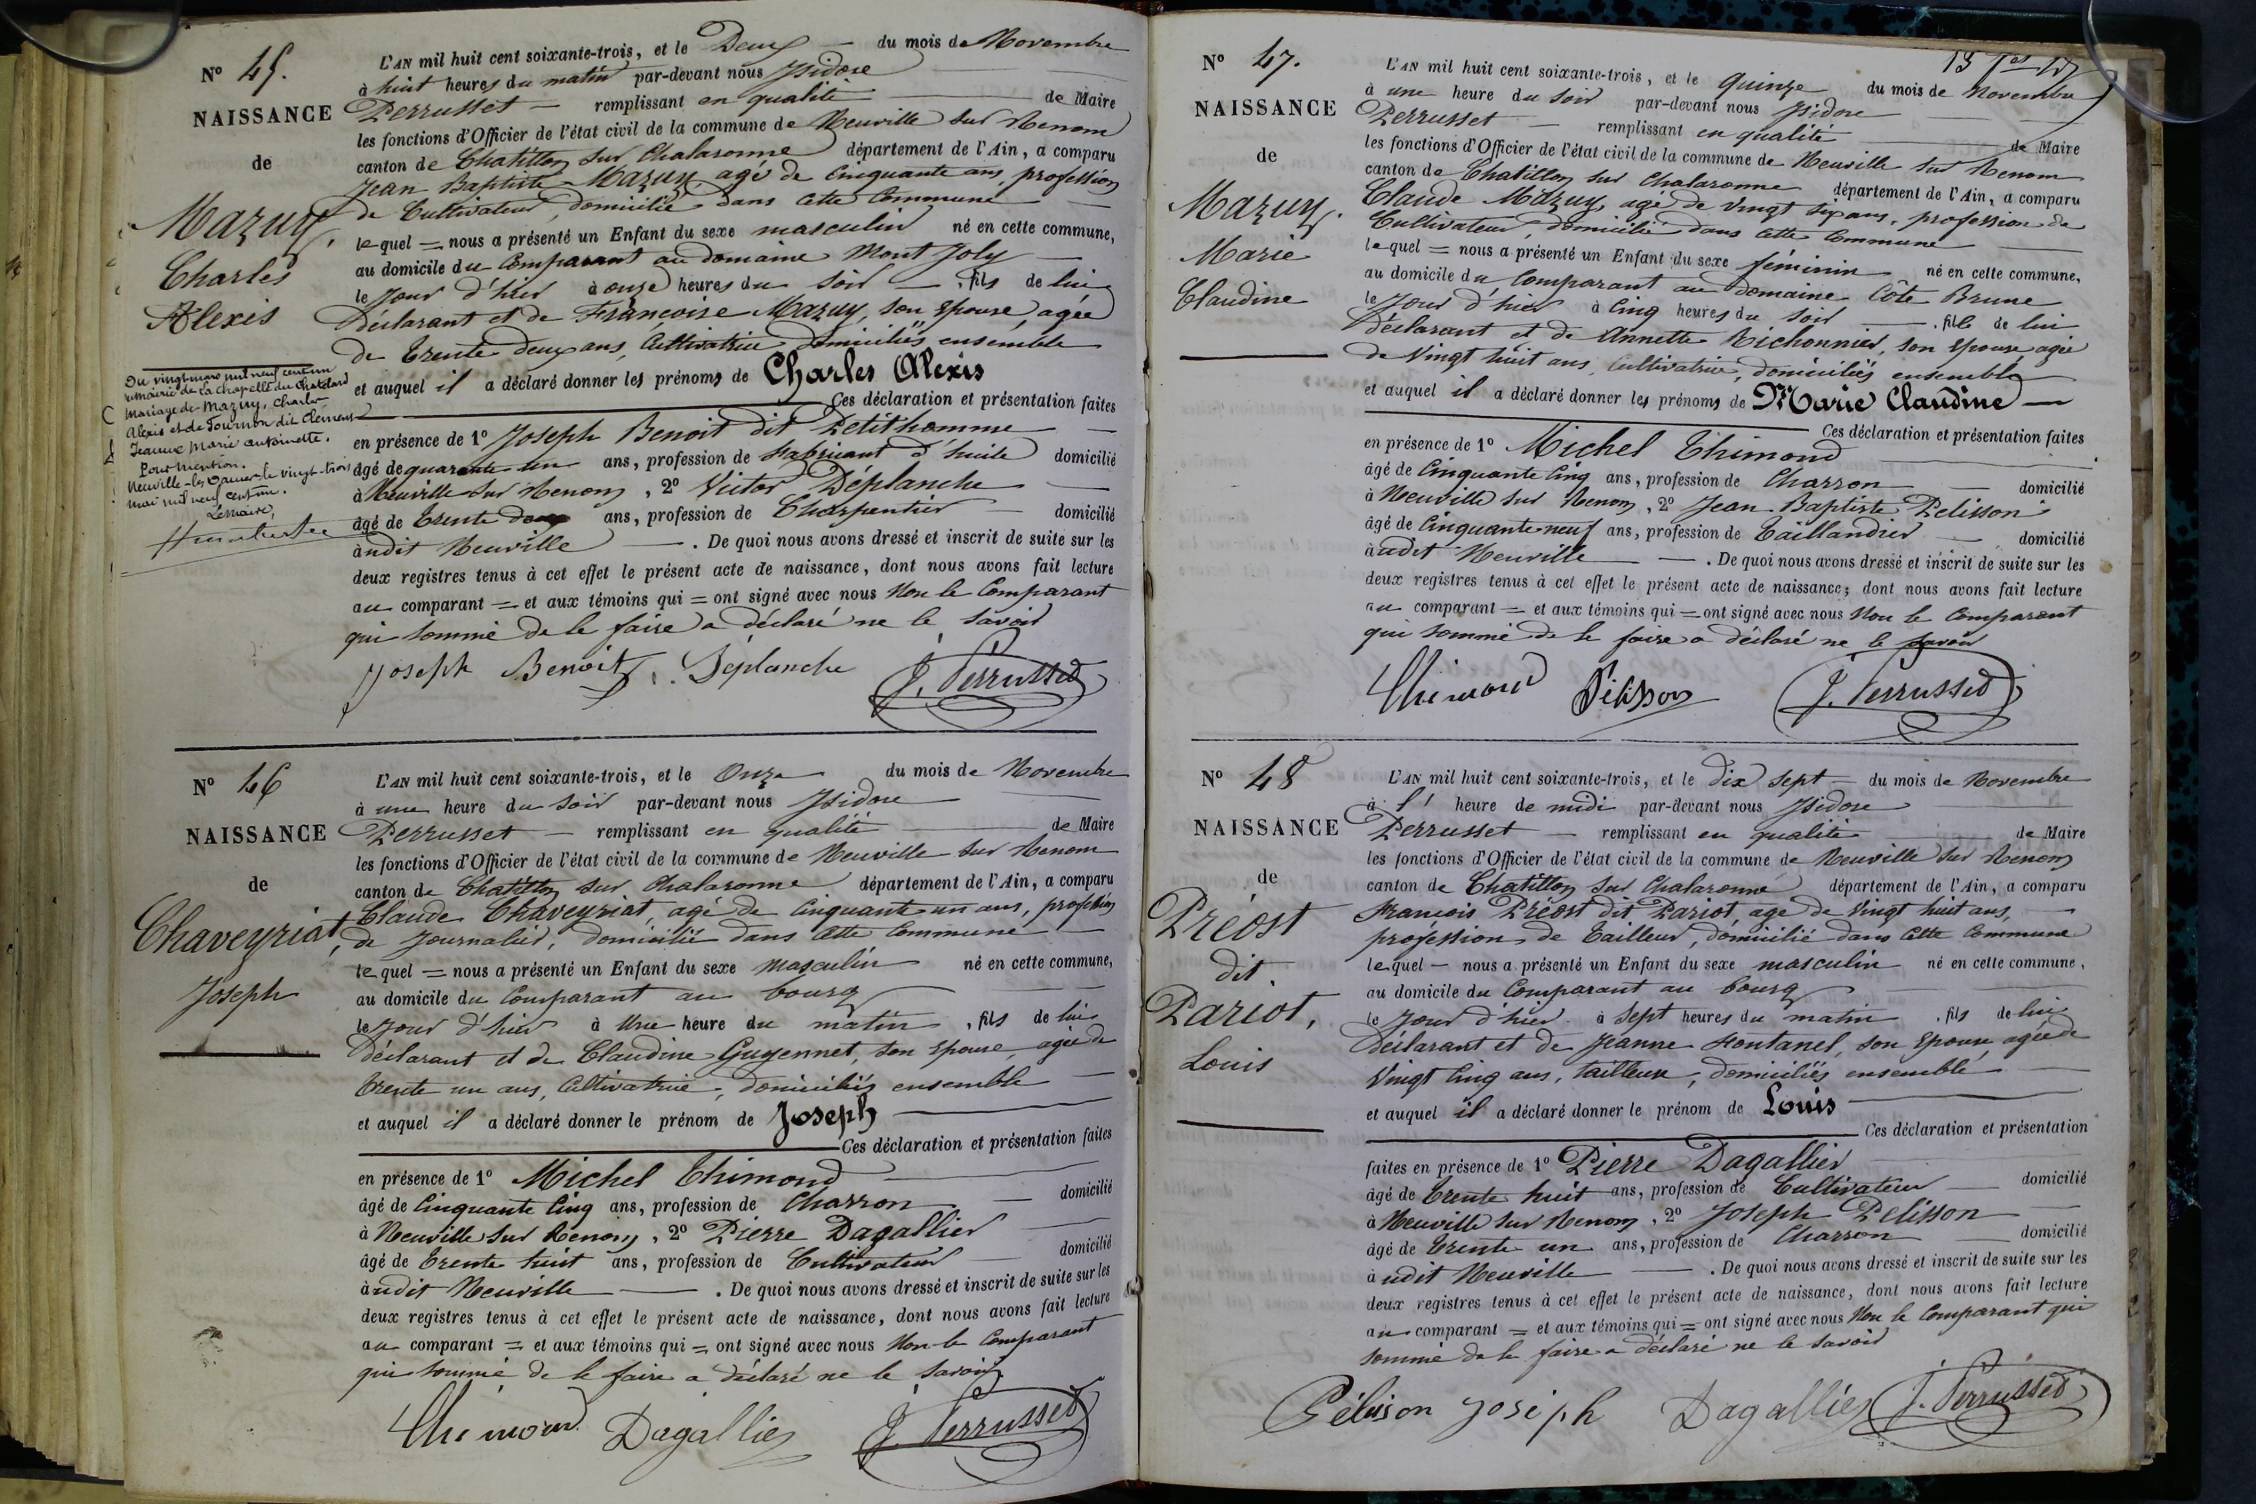 N° 45.
NAISSANCE
de
Mazuy,
Charles
Alexis
Du vingt mars mil neuf cent un
mairie de la Chapelle du Chatelard
Mariage de Mazuy, Charles
Alexis et de Tournon dit Clément
Jeanne Marie Antoinette.
Pour mention.
Neuville-les-Dames le vingt-trois
mai mil neuf cent un.
Le maire,
L'AN mil huit cent soixante-trois, et le Deux du mois de Novembre
à huit heures du matin par-devant nous Isidore
Perrusset remplissant en qualité de Maire
les fonctions d'Officier de l'état civil de la commune de Neuville sur Renom
canton de Chatillon sur Chalaronne département de l'Ain, a comparu
Jean Baptiste Mazuy, agé de Cinquante ans, profession
de Cultivateur, domicilié dans cette Commune
lequel = nous a présenté un Enfant du sexe masculin né en cette commune,
au domicile du Comparant au domaine Mont Joly
le Jour d'hier à onze heures du soir, fils de lui
Déclarant et de Françoise Mazuy, son Epouse, agée
de trente deux ans, Cultivatrice domiciliés ensemble
et auquel il a déclaré donner les prénoms de Charles Alexis
Ces déclaration et présentation faites
en présence de 1° Joseph Benoit dit Petithomme
âgé de quarante un ans, profession de Fabricant d'huile domicilié
à Neuville sur Renom, 2° Victor Déplanche
âgé de trente deux ans, profession de Charpentier domicilié
à udit Neuville. De quoi nous avons dressé et inscrit de suite sur les
deux registres tenus à cet effet le présent acte de naissance, dont nous avons fait lecture
au comparant = et aux témoins qui = ont signé avec nous Non le Comparant
qui sommé de le faire a déclaré ne le savoir
Joseph Benoit Déplanche J. Perrusset
N° 46
NAISSANCE
de
Chaveyriat,
Joseph
L'AN mil huit cent soixante-trois, et le Onze du mois de Novembre
à une heure du soir par-devant nous Isidore
Perrusset remplissant en qualité de Maire
les fonctions d'Officier de l'état civil de la commune de Neuville sur Renom
canton de Chatillon sur Chalaronne département de l'Ain, a comparu
Claude Chaveyriat, agé de Cinquante un ans, profession
de Journalier, domicilié dans cette Commune
lequel = nous a présenté un Enfant du sexe masculin né en cette commune,
au domicile du Comparant au bourg
le Jour d'hier à Une heure du matin, fils de lui
Déclarant et de Claudine Guyennet, son Epouse, agée de
trente un ans, Cultivatrice, domiciliés ensemble
et auquel il a déclaré donner le prénom de Joseph
Ces déclaration et présentation faites
en présence de 1° Michel Thimond
âgé de Cinquante Cinq ans, profession de Charron domicilié
à Neuville sur Renom, 2° Pierre Dagallier
âgé de trente huit ans, profession de Cultivateur domicilié
à udit Neuville. De quoi nous avons dressé et inscrit de suite sur les
deux registres tenus à cet effet le présent acte de naissance, dont nous avons fait lecture
au comparant = et aux témoins qui = ont signé avec nous Non le Comparant
qui sommé de le faire a déclaré ne le savoir
Thimond Dagallier J. Perrusset
N° 47.
NAISSANCE
de
Mazuy.
Marie
Claudine
L'AN mil huit cent soixante-trois, et le quinze du mois de Novembre
à une heure du soir par-devant nous Isidore
Perrusset remplissant en qualité de Maire
les fonctions d'Officier de l'état civil de la commune de Neuville sur Renom
canton de Chatillon sur Chalaronne département de l'Ain, a comparu
Claude Mazuy, agé de vingt six ans, profession de
Cultivateur, domicilié dans cette Commune
lequel = nous a présenté un Enfant du sexe féminin né en cette commune,
au domicile du Comparant au domaine Côte Brune
le Jour d'hier à Cinq heures du soir, fille de lui
Déclarant et de Annette Bichonnier, son Epouse, agée
de Vingt huit ans, Cultivatrice, domiciliés ensemble
et auquel il a déclaré donner les prénoms de Marie Claudine
Ces déclaration et présentation faites
en présence de 1° Michel Thimond
âgé de Cinquante Cinq ans, profession de Charron domicilié
à Neuville sur Renom, 2° Jean Baptiste Pelisson
âgé de Cinquante neuf ans, profession de Taillandier domicilié
à udit Neuville. De quoi nous avons dressé et inscrit de suite sur les
deux registres tenus à cet effet le présent acte de naissance; dont nous avons fait lecture
au comparant = et aux témoins qui = ont signé avec nous Non le Comparant
qui sommé de le faire a déclaré ne le savoir
Thimond Pélisson J. Perrusset
N° 48
NAISSANCE
de
Préost
dit
Pariot,
Louis
L'AN mil huit cent soixante-trois, et le dix sept du mois de Novembre
à l' heure de midi par-devant nous Isidore
Perrusset remplissant en qualité de Maire
les fonctions d'Officier de l'état civil de la commune de Neuville sur Renom
canton de Chatillon sur Chalaronne département de l'Ain, a comparu
François Préost dit Pariot, agé de Vingt huit ans,
profession de Tailleur, domicilié dans cette Commune
lequel - nous a présenté un Enfant du sexe masculin né en cette commune,
au domicile du Comparant au bourg
le Jour d'hier à Sept heures du matin, fils de lui
Déclarant et de Jeanne Fontanel, son Epouse agée de
Vingt Cinq ans, tailleuse, domiciliés ensemble
et auquel il a déclaré donner le prénom de Louis
Ces déclaration et présentation
faites en présence de 1° Pierre Dagallier
âgé de trente huit ans, profession de Cultivateur domicilié
à Neuville sur Renom, 2° Joseph Pelisson
âgé de trente un ans, profession de Charron domicilié
à udit Neuville. De quoi nous avons dressé et inscrit de suite sur les
deux registres tenus à cet effet le présent acte de naissance, dont nous avons fait lecture
au comparant = et aux témoins qui = ont signé avec nous Non le Comparant qui
sommé de le faire a déclaré ne le savoir
Pélisson Joseph Dagallier J. Perrusset